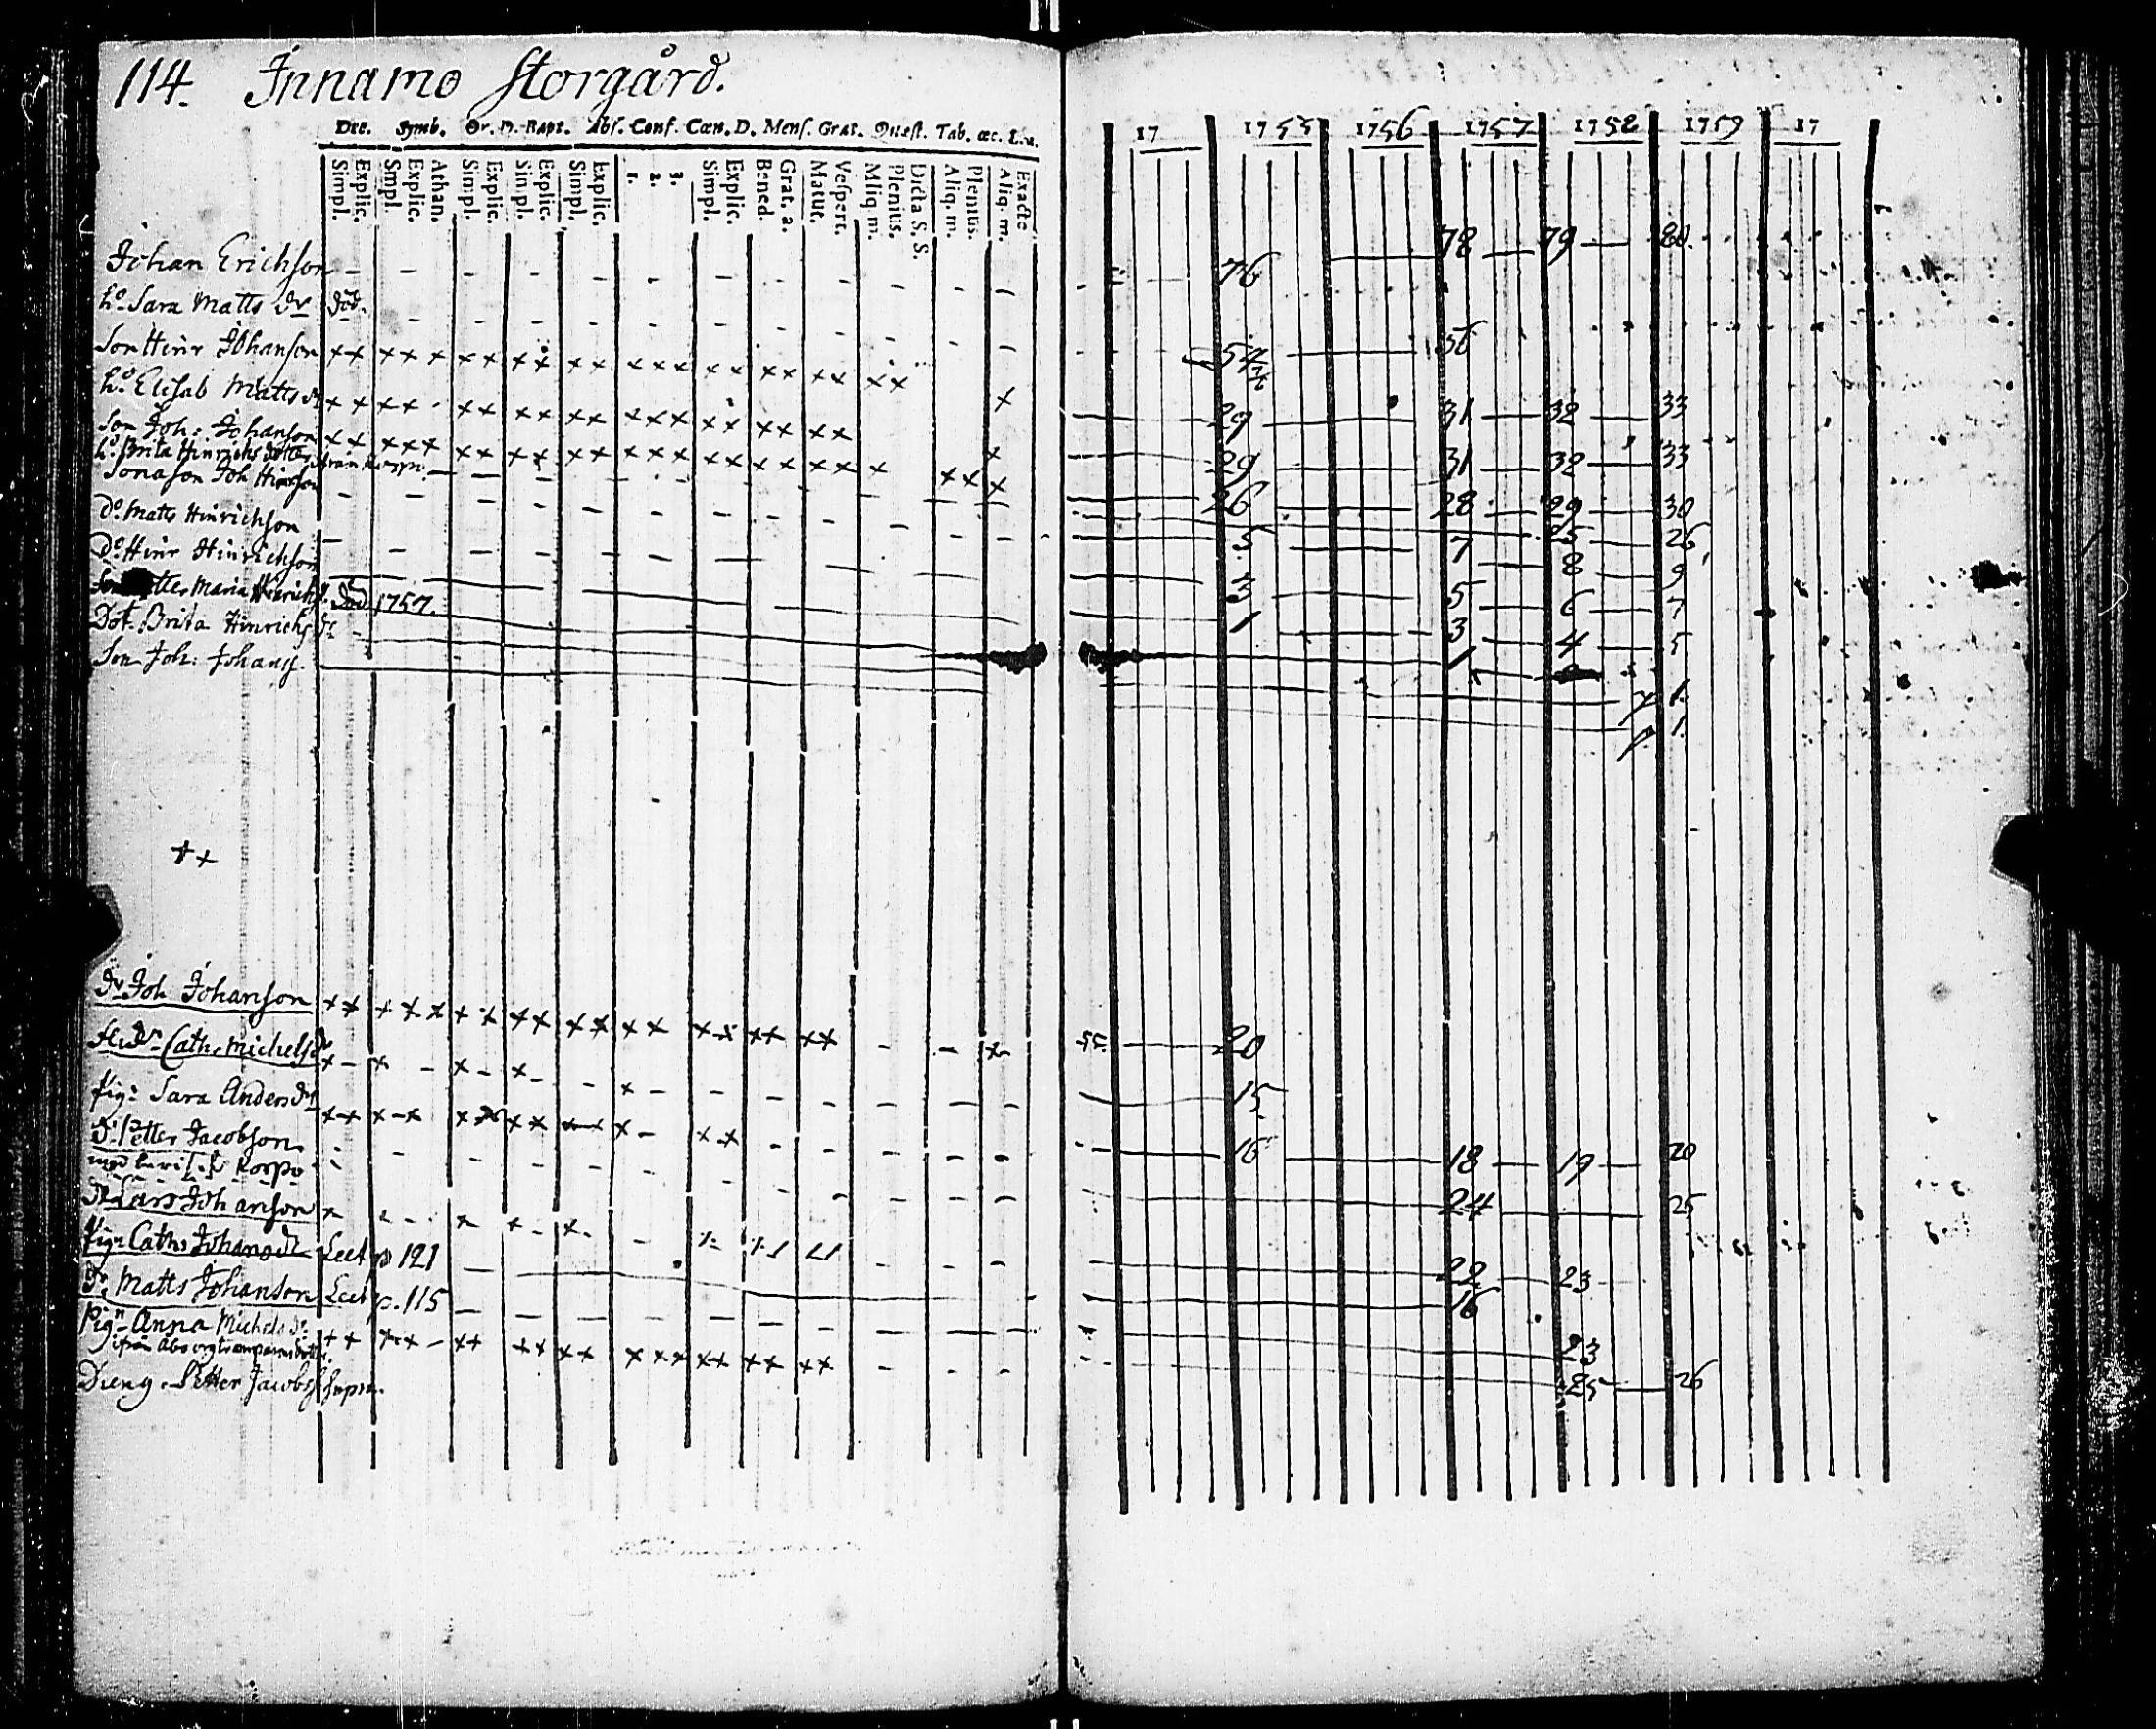 114. Innamo Storgård.
Dec. Symb. Or. D. Bapt. Abs. Conf. Cœn. D. Mens. Grat. Quæst. Tab. œc. L.u.
Simpl. Explic. Simpl. Explic. Athan. Simpl. Explic. Simpl. Explic. Simpl. Explic. 1. 2. 3. Simpl. Explic. Bened. Grat. a. Matut. Vespert. Aliq. m. Plenius. Dicta S. S. Aliq. m. Plenius. Aliq. m. Exacte
17 1755 1756 1757 1758 1759 17
Johan Erichson 76 78 79 80
h:o Sara Matts dr död. 54 56
Son Hinr Johanson 29 31 32 33
h:o Elisab Matts dr 29 31 32 33
Son Joh: Johanson 26 28 29 30
h:o Brita Hinrichs dotter 25 26
Sonason Joh Hinrson 5 7 8 9
D:o Matts Hinrichson 3 5 6 7
D:o Hinr Hinrichson 1 3 4 5
Maria Hinrichs död 1757. 1
Dot. Brita Hinrichs dr 1.
Son Joh: Johans. 1.
++
Dr Joh Johanson 55. 20
Cath. Michelsdr 15
Pig: Sara Anders dr 16 18 19 20
Dr Petter Jacobson 24 25
Korpo
Dr Lars Johanson 22 23
Pig: Cath: Johans dr Lect p 121 16
Dr Matts Johanson Lect p. 115 23
Pig:n Anna Michels dr 25 26
ifrån Åbo
Dreng. Petter Jacobs supra.